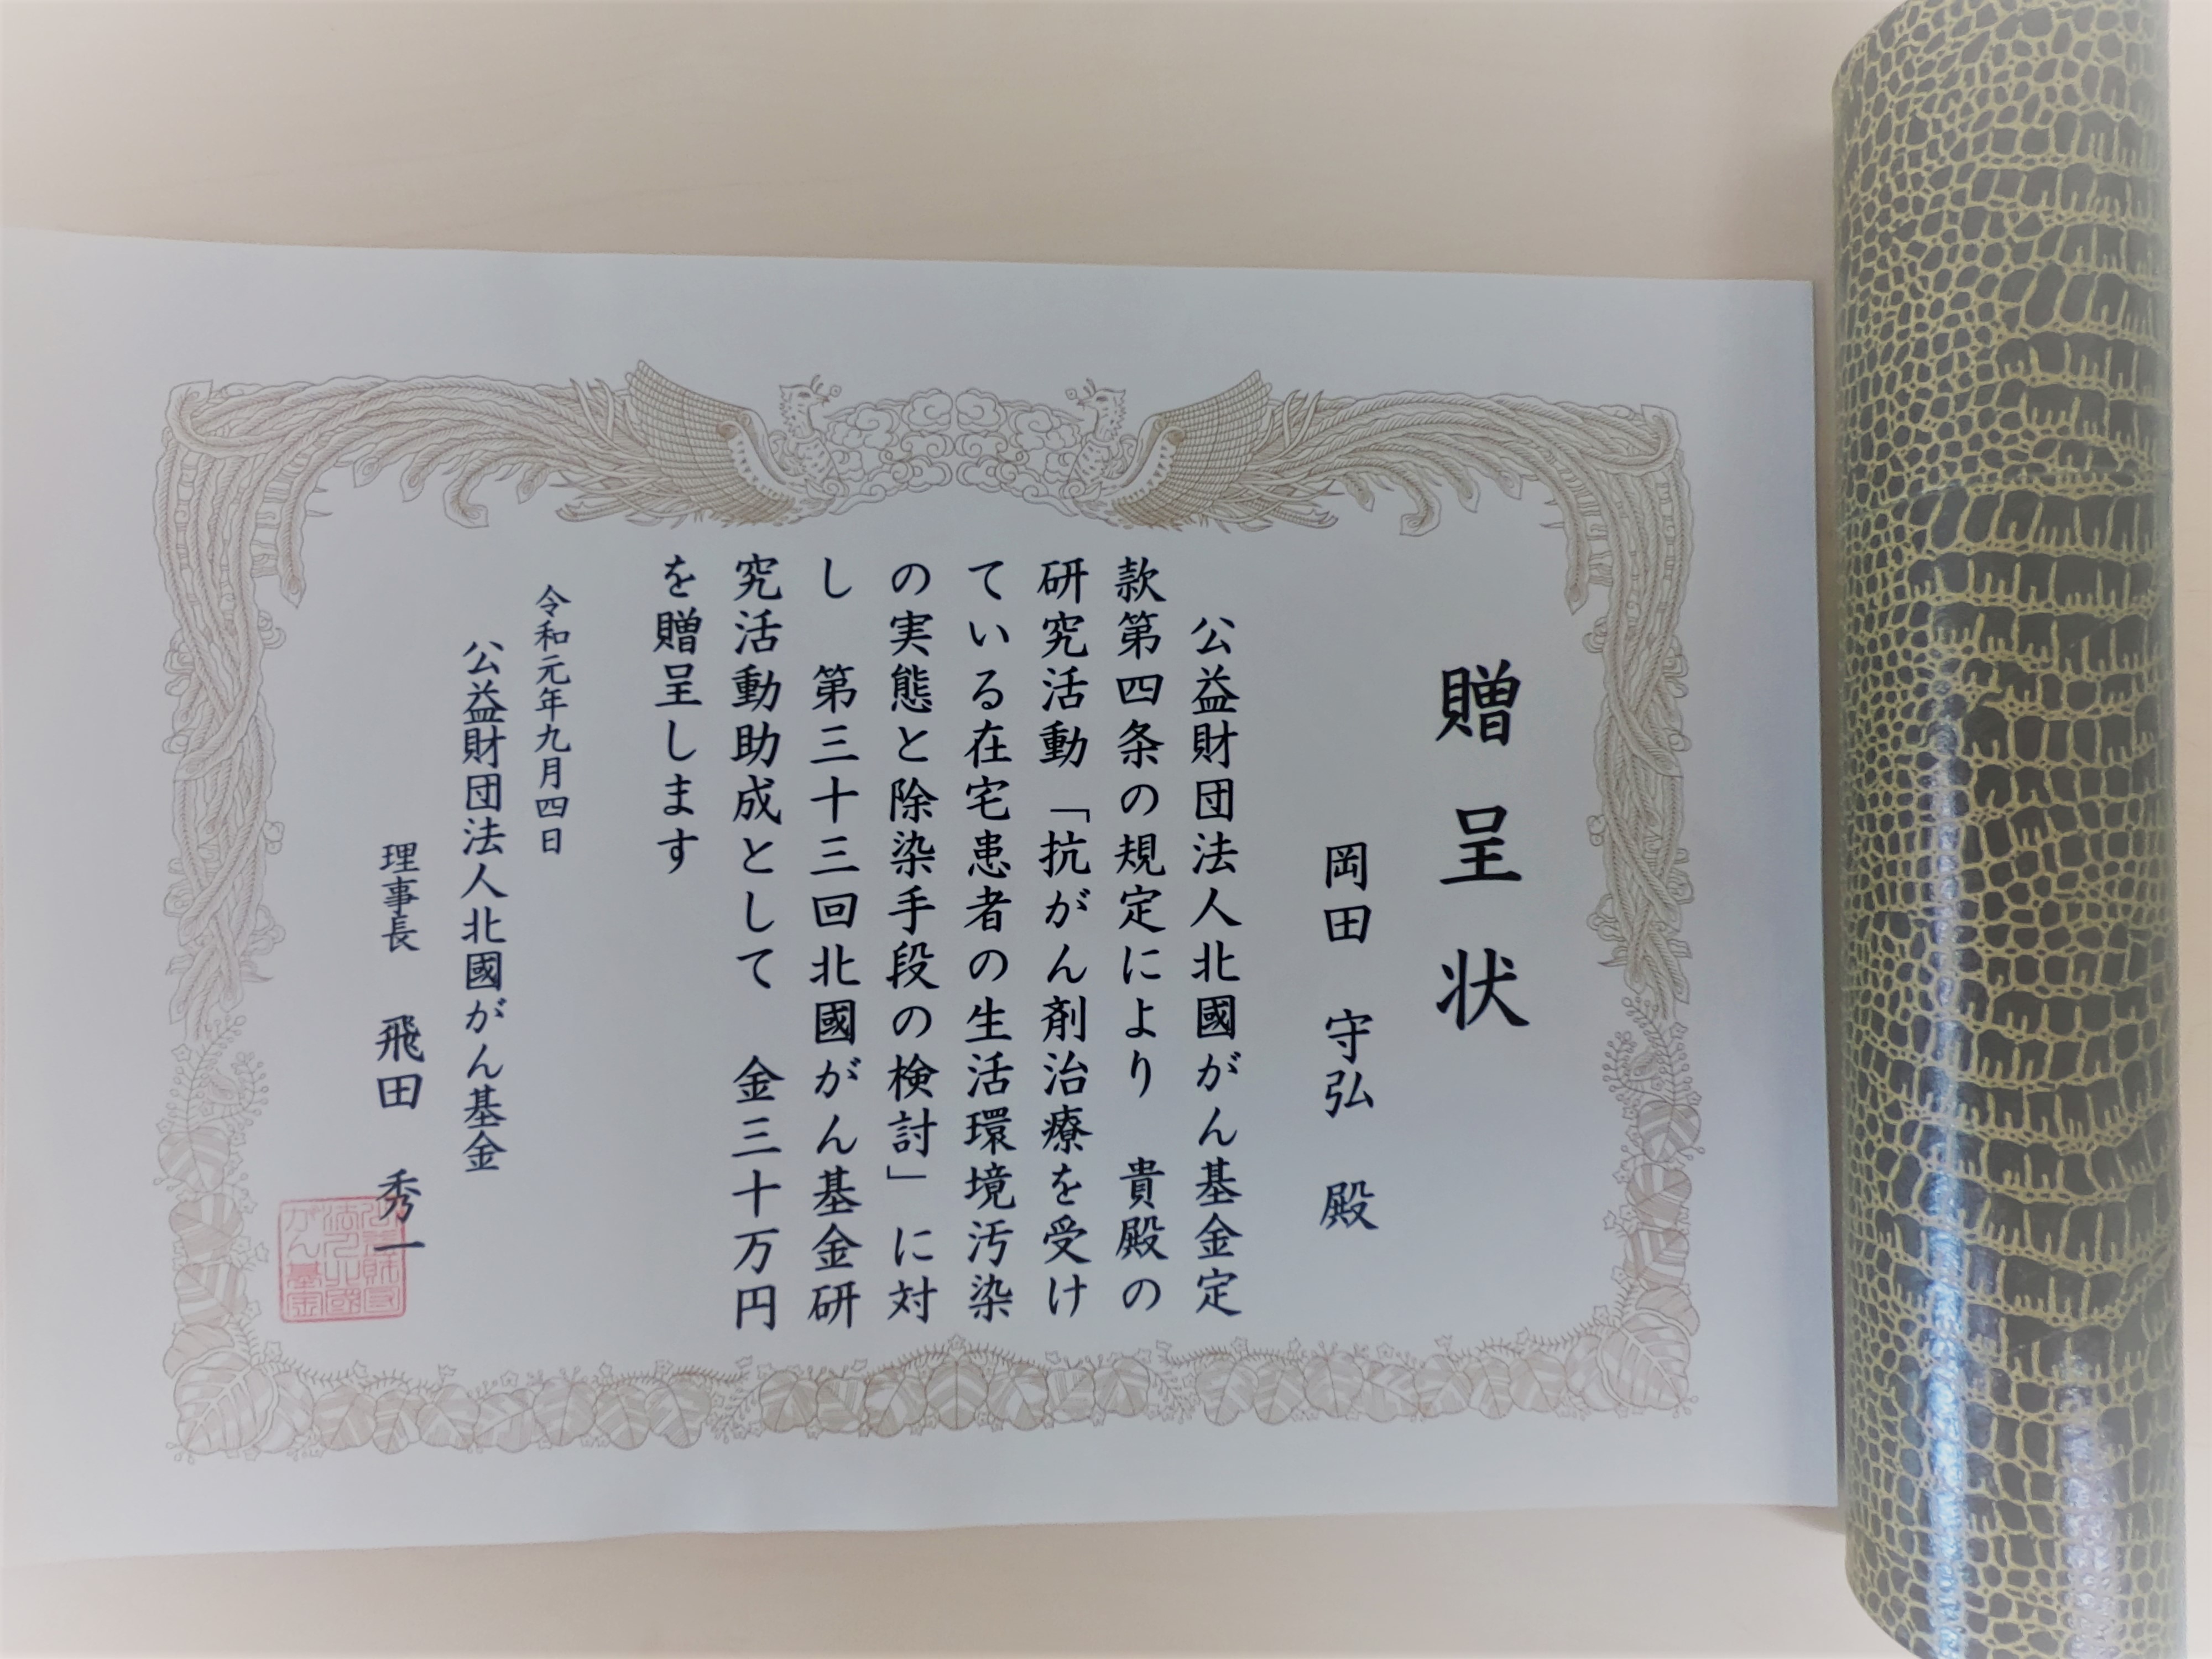 贈呈状
岡田　守弘　殿
公益財団法人北國がん基金定
款第四条の規定により　貴殿の
研究活動「抗がん剤治療を受け
ている在宅患者の生活環境汚染
の実態と除染手段の検討」に対
し　第三十三回北國がん基金研
究活動助成として　金三十万円
を贈呈します
令和元年九月四日
公益財団法人北國がん基金
理事長　飛田　秀一
公益財団
法人北國
がん基金